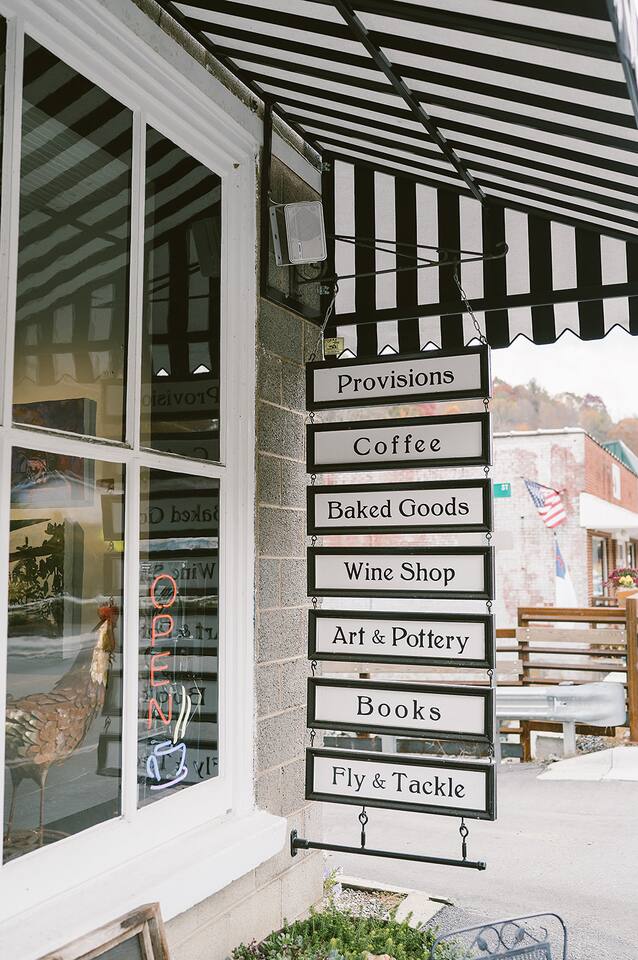 Provisions
Coffee
Baked Goods
Wine Shop
Art & Pottery
Books
Fly & Tackle
OPEN
ST